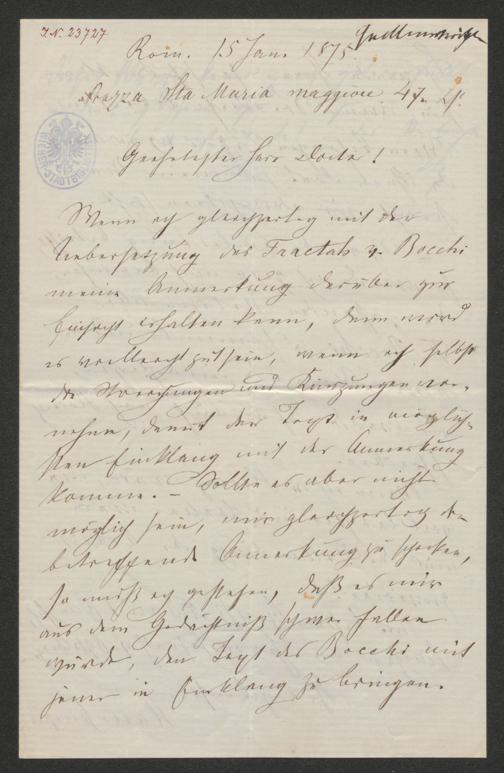 J. N. 23727
Quellenschriften
Rom. 15 Jan. 1875
Piazza Sta Maria maggiore 47.
Geehrtester Herr Doctor!
Wenn ich gleichzeitig mit der
Uebersetzung des Tractats v. Bocchi
meine Anmerkung darüber zur
Einsicht erhalten kann, dann wird
es vielleicht gut sein, wenn ich selbst
die Streichungen und Kürzungen vor-
nehme, damit der Text in möglich-
sten Einklang mit der Anmerkung
komme. – Sollte es aber nicht
möglich sein, mir gleichzeitig die
betreffende Anmerkung zu schicken,
so muß ich gestehen, daß es mir
aus dem Gedächtniß schwer fallen
würde, den Text des Bocchi mit
jener in Einklang zu bringen.